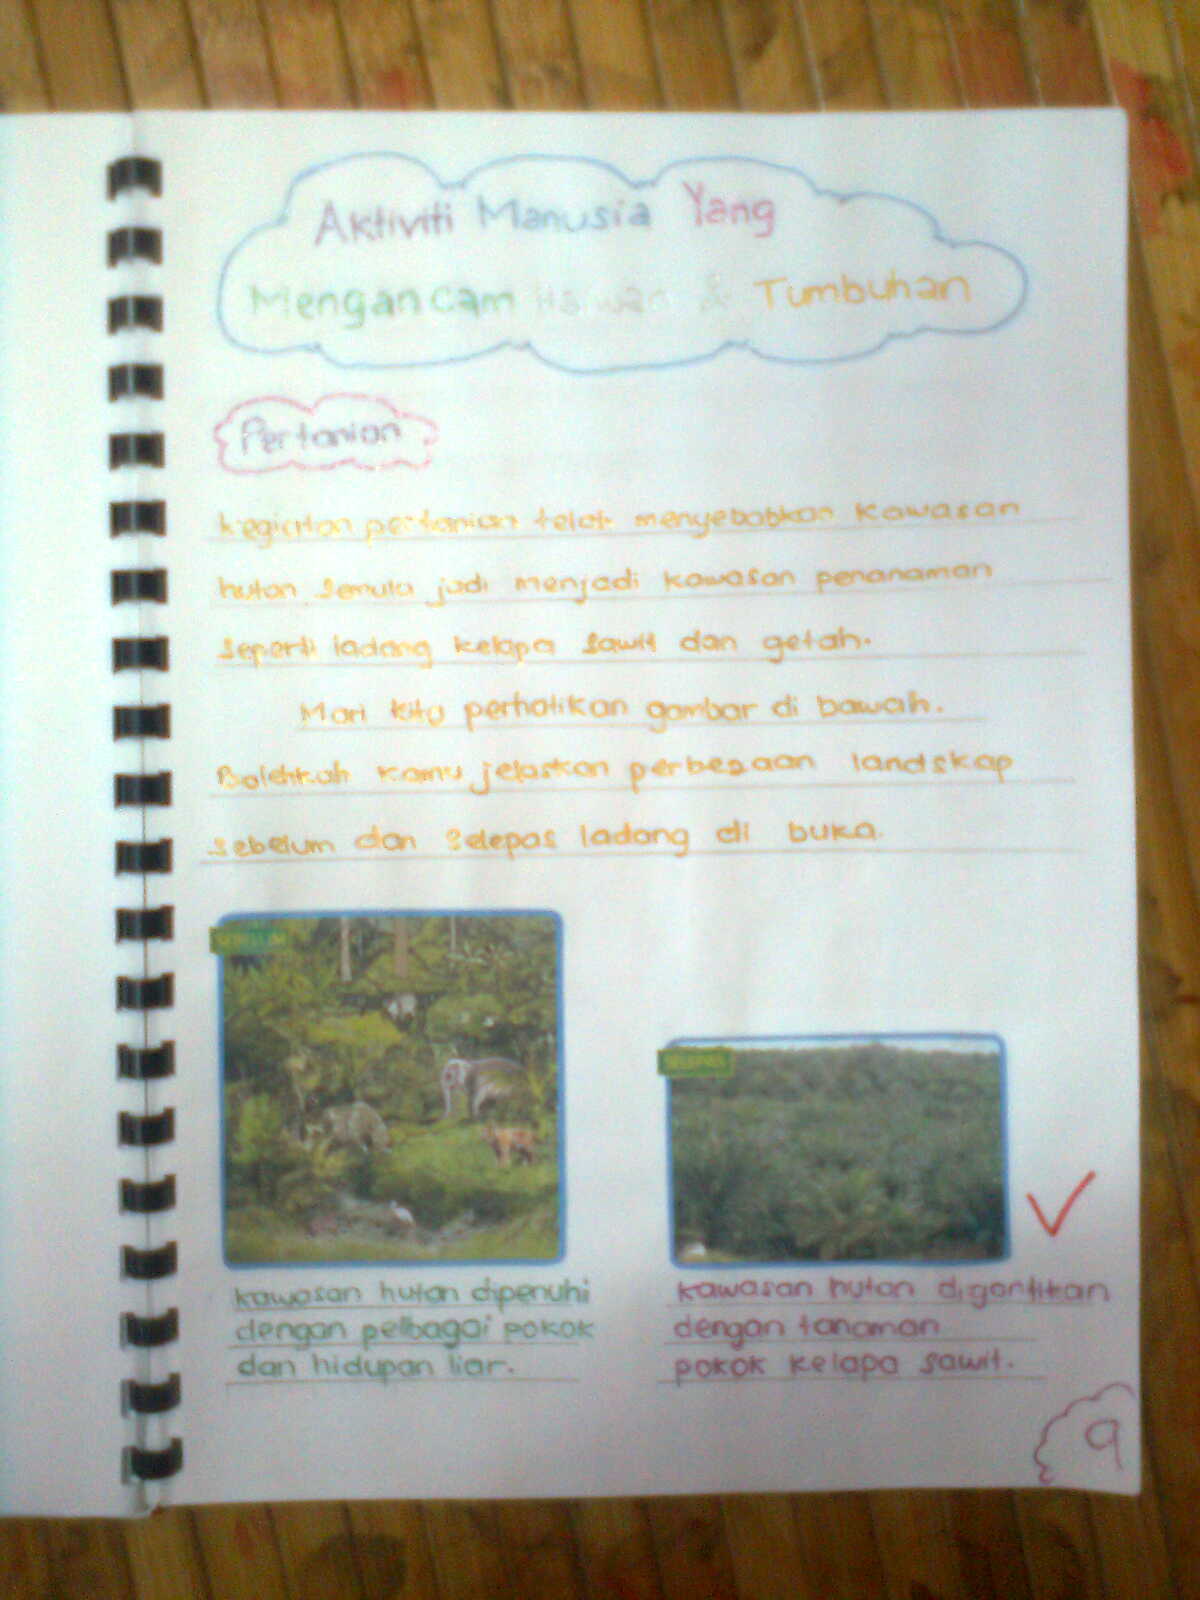 Aktiviti Manusia Yang
Mengancam Haiwan & Tumbuhan
Pertanian
Kegiatan pertanian telah menyebabkan kawasan
hutan semula jadi menjadi kawasan penanaman
seperti ladang kelapa sawit dan getah.
Mari kita perhatikan gambar di bawah.
Bolehkah kamu jelaskan perbezaan landskap
sebelum dan selepas ladang di buka.
SEBELUM
SELEPAS
kawasan hutan dipenuhi
dengan pelbagai pokok
dan hidupan liar.
kawasan hutan digantikan
dengan tanaman
pokok kelapa sawit.
9